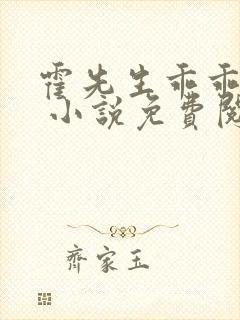 霍先生乖乖
小說免費閱
齊家玉